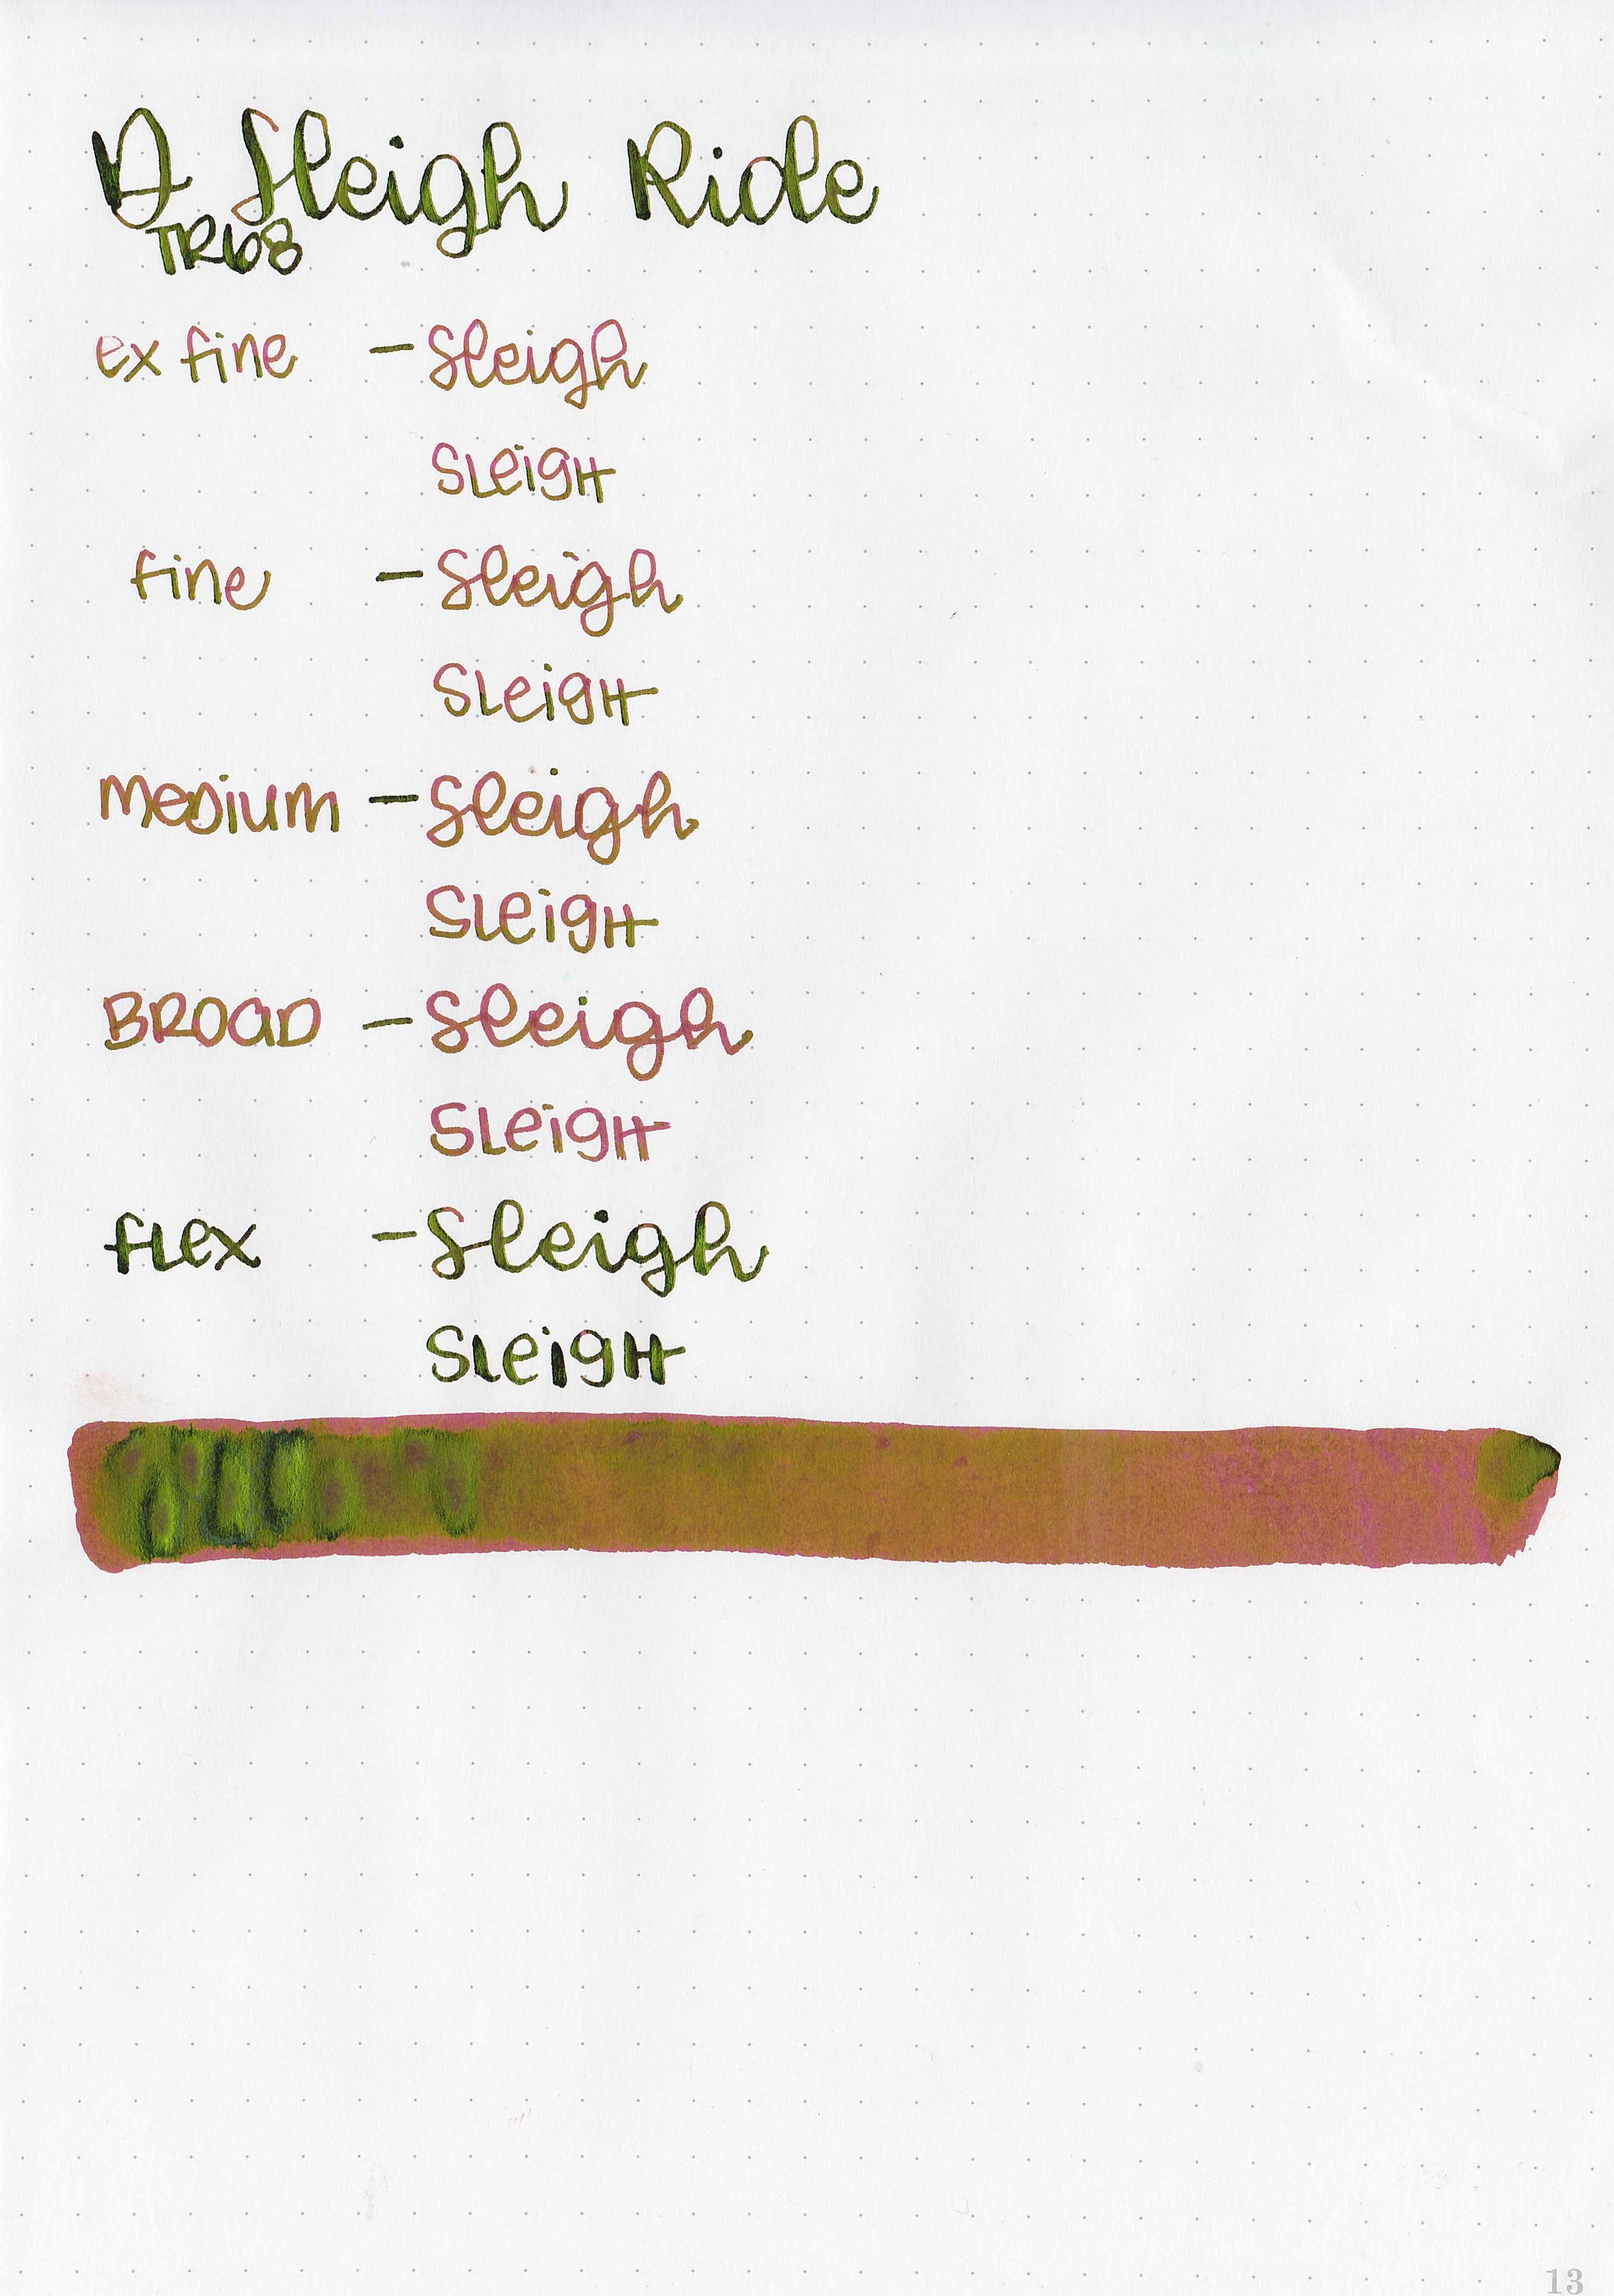 D Sleigh Ride
TR68
ex fine - Sleigh
SLeigH
fine - Sleigh
SLeigH
meDium - Sleigh
SLeigH
BROaD - Sleigh
SLeigH
fLex - Sleigh
SLeigH
13